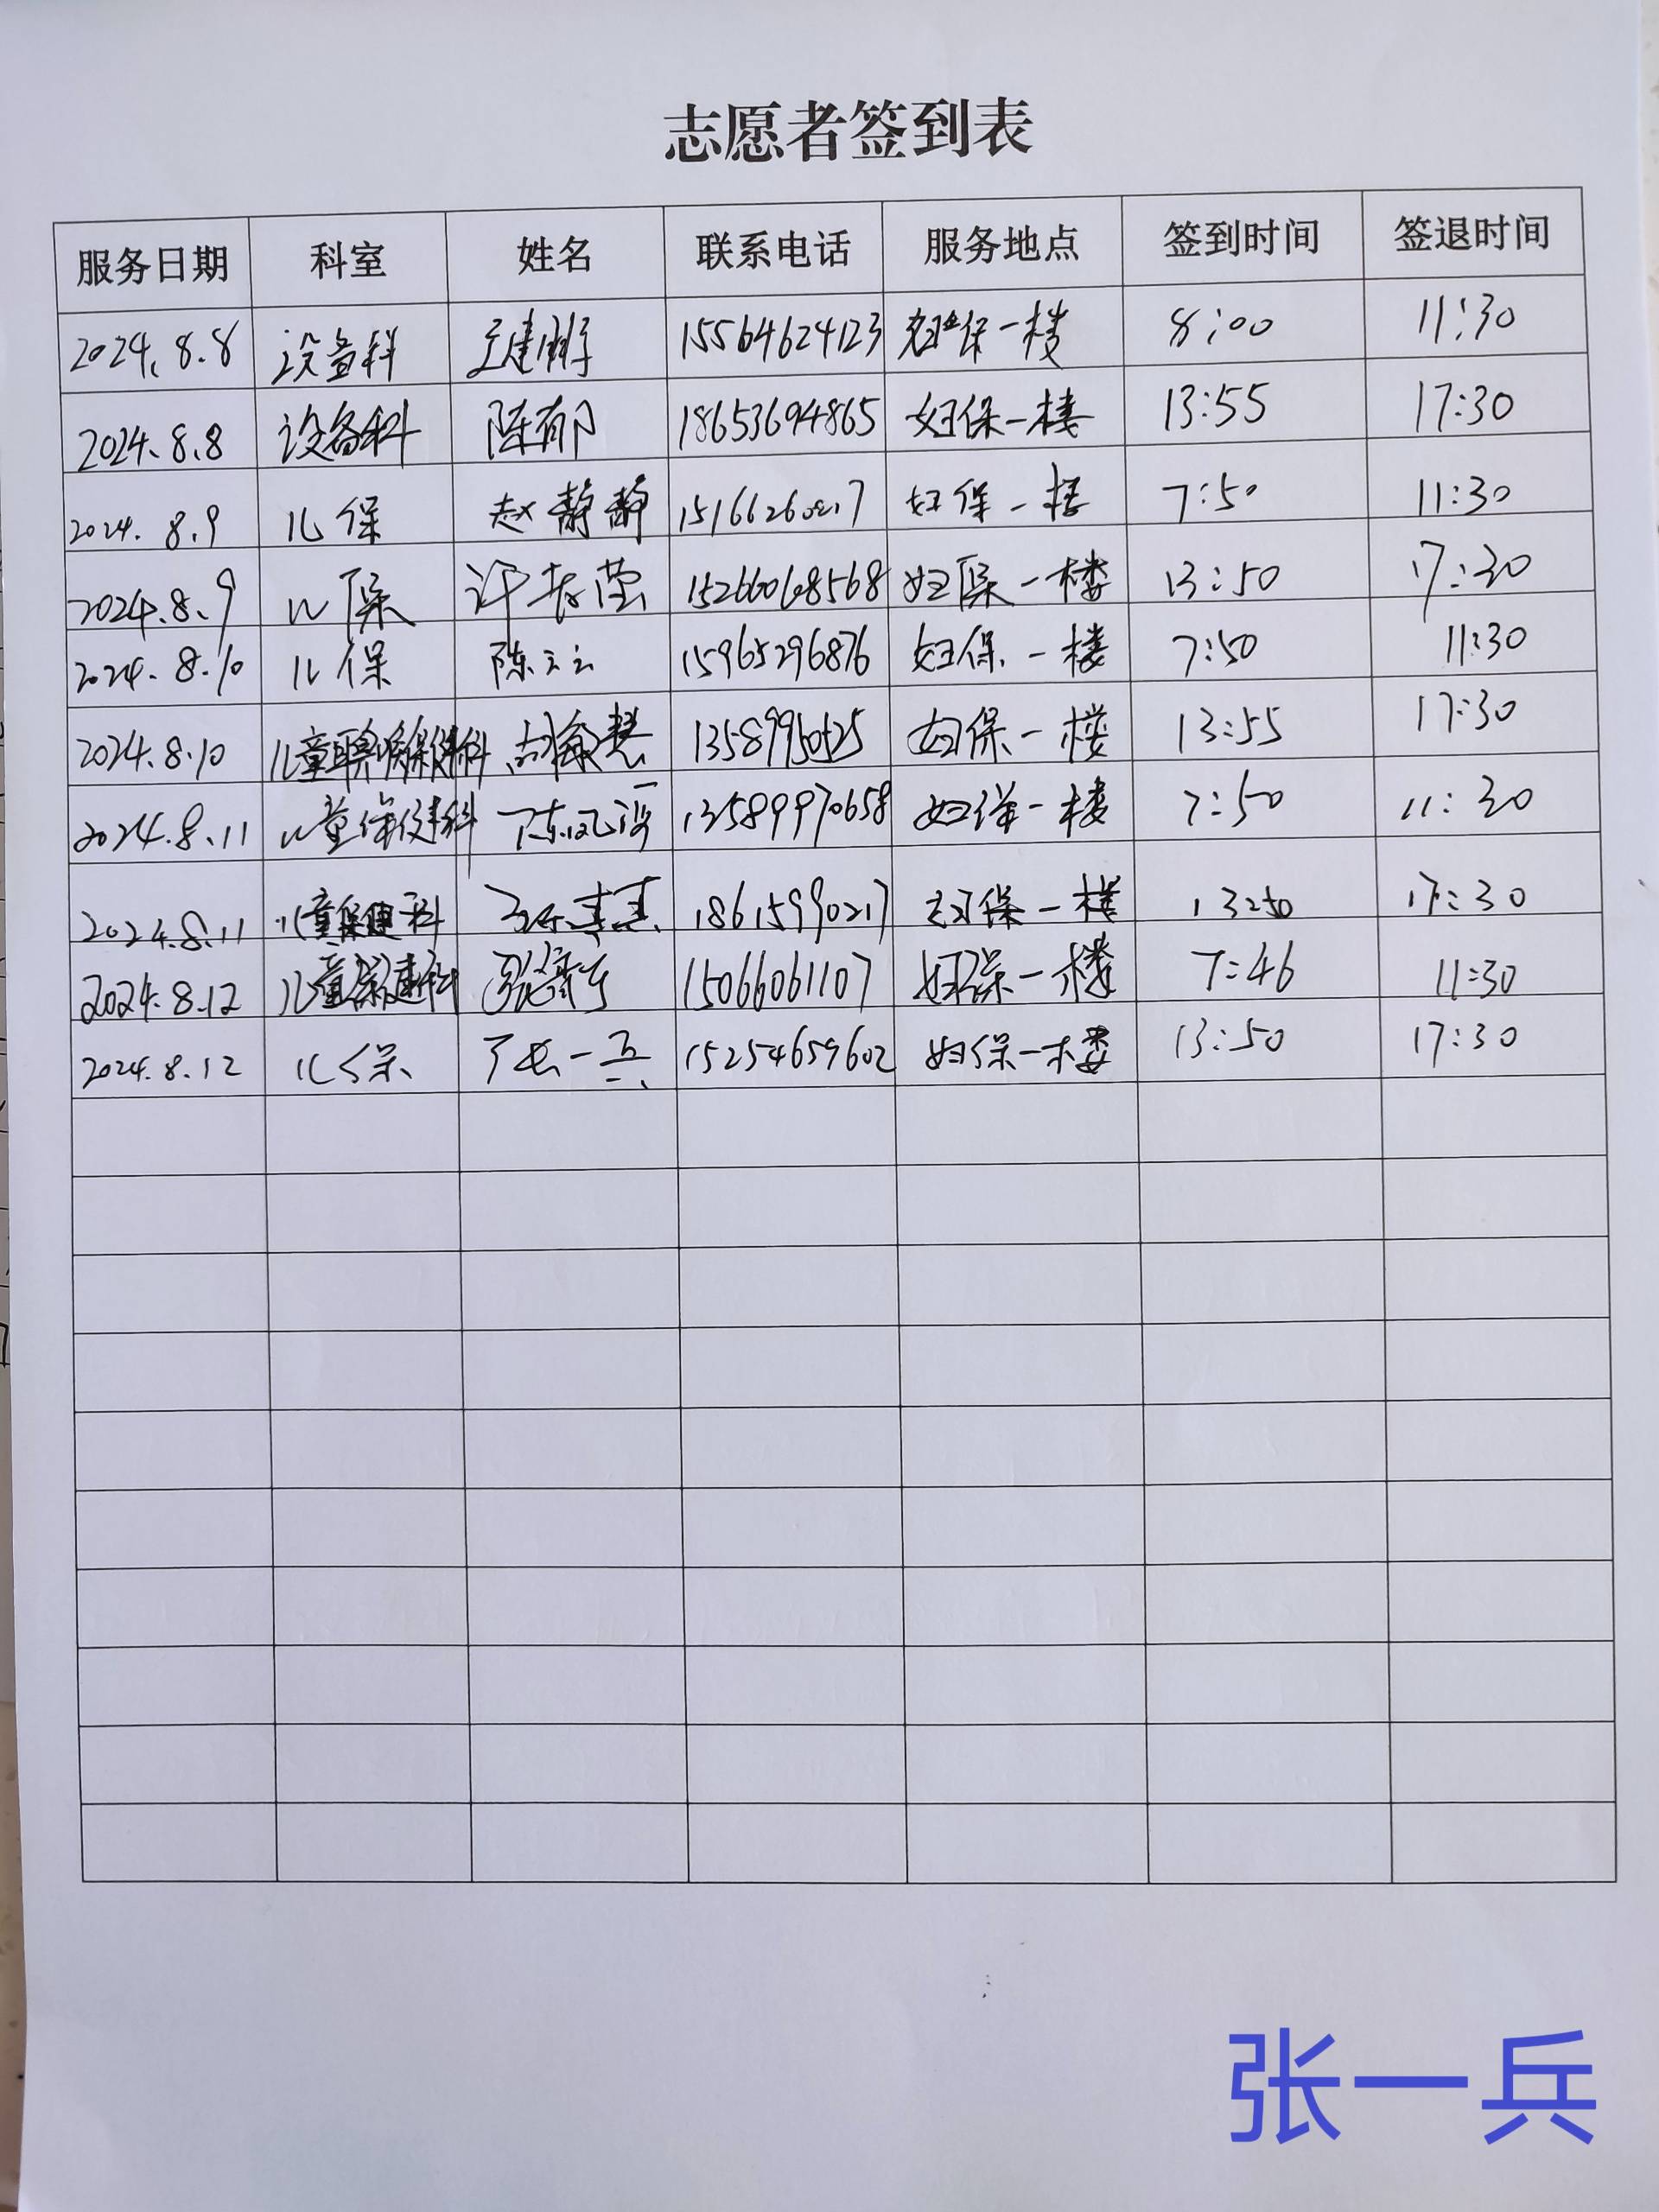 志愿者签到表
服务日期 科室 姓名 联系电话 服务地点 签到时间 签退时间
2024.8.8 设备科 15564624123 妇保一楼 8:00 11:30
2024.8.8 设备科 陈郁 18653694865 妇保一楼 13:55 17:30
2024.8.9 儿保 赵静静 妇保一楼 7:50 11:30
2024.8.9 儿保 许 莹 妇保一楼 13:50 17:30
2024.8.10 儿保 陈云云 15965296876 妇保一楼 7:50 11:30
2024.8.10 胡敏慧 妇保一楼 13:55 17:30
2024.8.11 儿童保健科 陈 13589970658 妇保一楼 7:50 11:30
2024.8.11 儿童保健科 18615990217 妇保一楼 13:50 17:30
2024.8.12 儿童保健科 张 15066061107 妇保一楼 7:46 11:30
2024.8.12 儿保 张一兵 15254659602 妇保一楼 13:50 17:30
张一兵